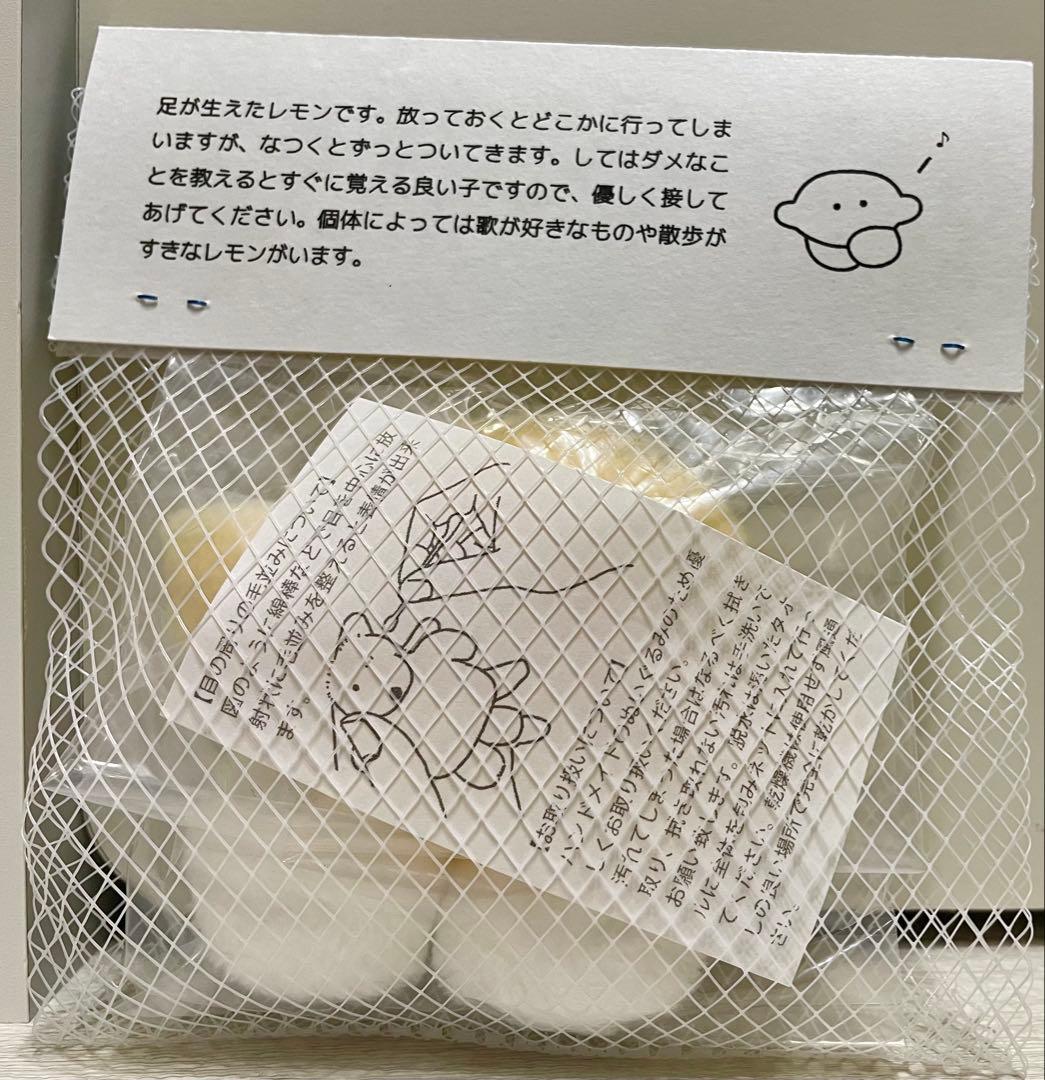 足が生えたレモンです。放っておくとどこかに行ってしま
いますが、なつくとずっとついてきます。してはダメなこ
とを教えるとすぐに覚える良い子ですので、優しく接して
あげてください。個体によっては歌が好きなものや散歩が
すきなレモンがいます。
♪
【目の周りの毛並みについて】
図のように綿棒などで目を中心に放
射状に毛並みを整えると表情が出来
ます。
【お取り扱いについて】
ハンドメイドのぬいぐるみのため優
しくお取り扱いください。
汚れてしまった場合はなるべく拭き
取り、拭き取れない汚れは手洗いで
お願い致します。脱水は洗いとタオ
ルに全体を包みネットに入れて行っ
てください。乾燥機は使用せず風通
しの良い場所で完全に乾かしてくだ
さい。